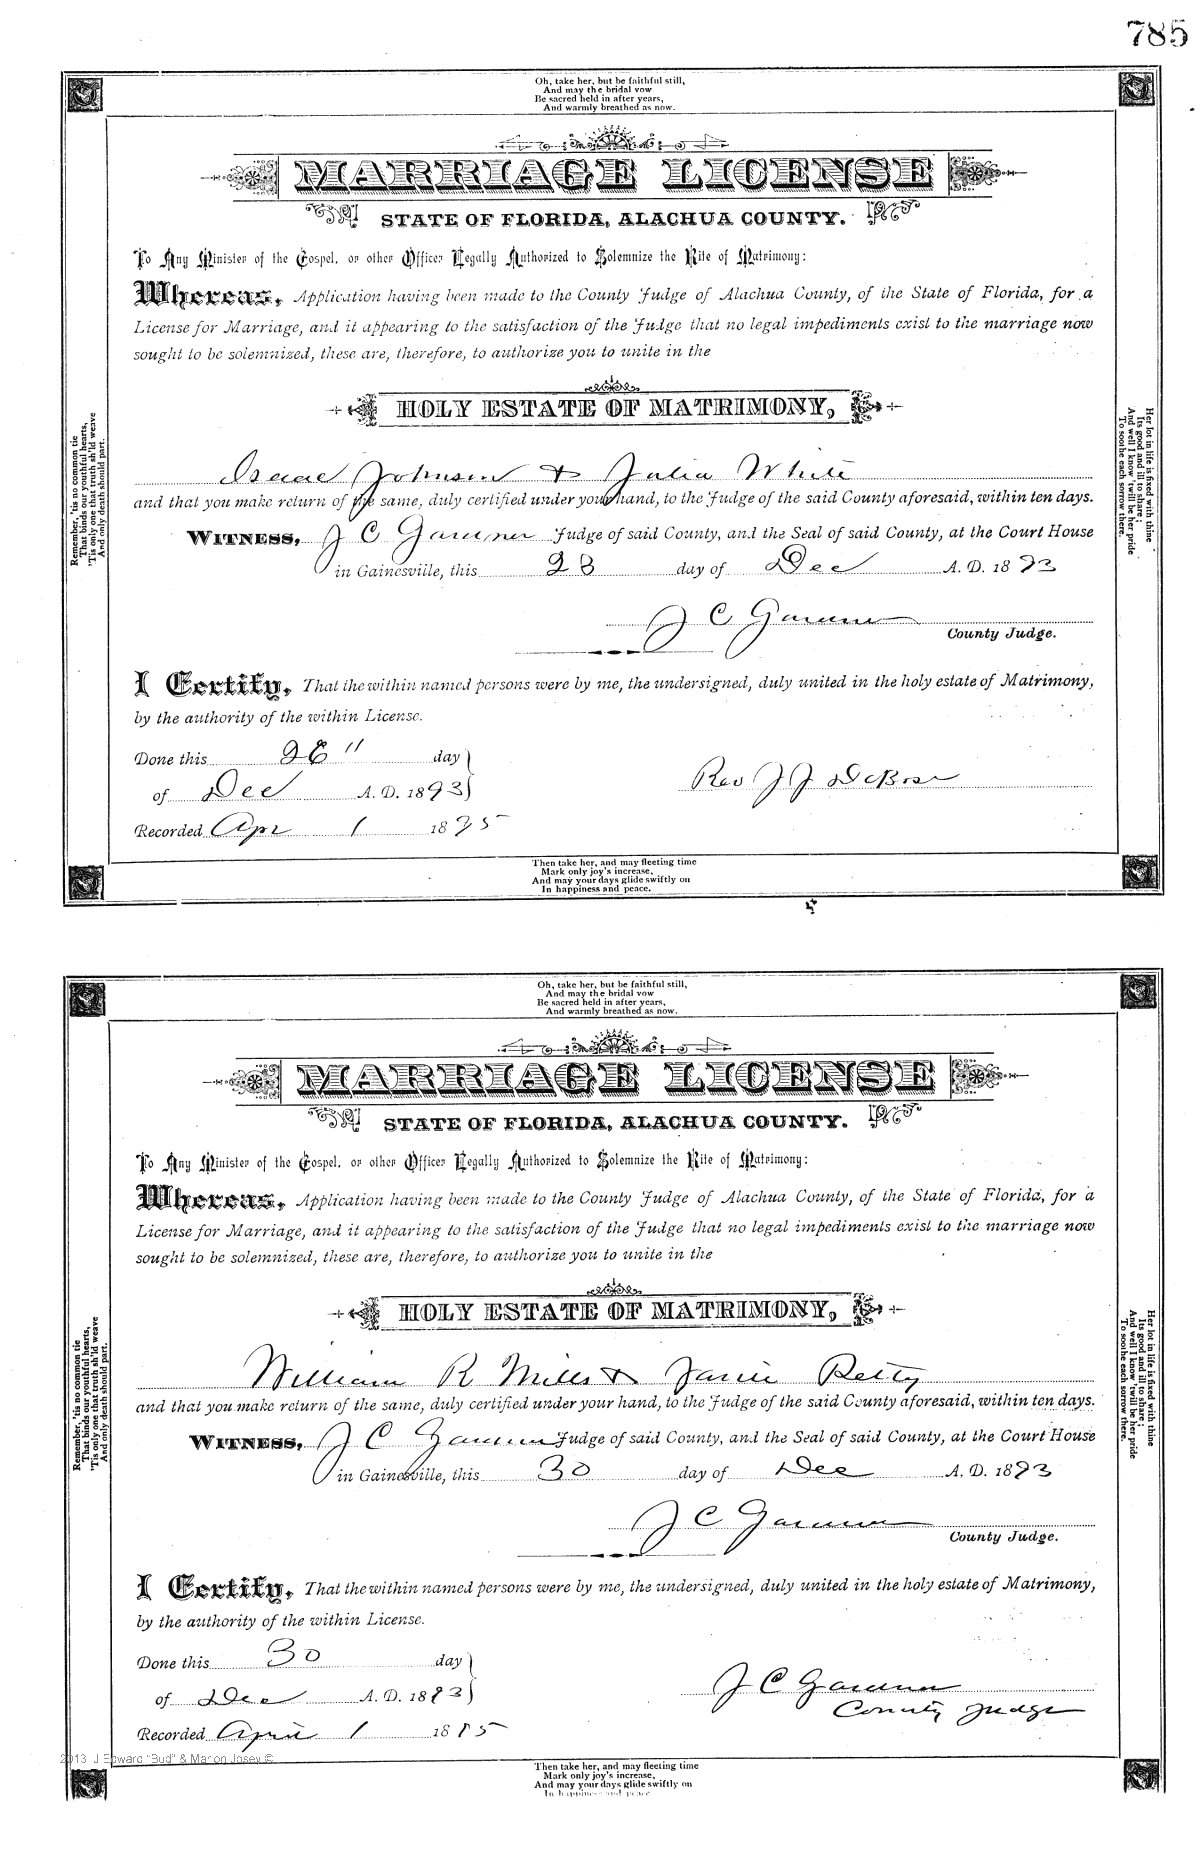 785
Oh, take her, but be faithful still,
And may the bridal vow
Be sacred held in after years,
And warmly breathed as now.
MARRIAGE LICENSE
STATE OF FLORIDA, ALACHUA COUNTY.
To Any Minister of the Gospel, or other Officer Legally Authorized to Solemnize the Rite of Matrimony:
Whereas, Application having been made to the County Judge of Alachua County, of the State of Florida, for a
License for Marriage, and it appearing to the satisfaction of the Judge that no legal impediments exist to the marriage now
sought to be solemnized, these are, therefore, to authorize you to unite in the
HOLY ESTATE OF MATRIMONY,
Isaac Johnson & Julia White
and that you make return of the same, duly certified under your hand, to the Judge of the said County aforesaid, within ten days.
WITNESS, J C Gardner Judge of said County, and the Seal of said County, at the Court House
in Gainesville, this 28 day of Dec A. D. 1893
J C Gardner
County Judge.
I Certify, That the within named persons were by me, the undersigned, duly united in the holy estate of Matrimony,
by the authority of the within License.
Done this 28" day
of Dec A. D. 1893
Rev J J DeBose
Recorded Apr 1 1895
Remember, 'tis no common tie
That binds our youthful hearts,
'Tis only one that truth sh'ld weave
And only death should part.
Her lot in life is fixed with thine
Its good and ill to share;
And well I know 'twill be her pride
To soothe each sorrow there.
Then take her, and may fleeting time
Mark only joy's increase,
And may your days glide swiftly on
In happiness and peace.
Oh, take her, but be faithful still,
And may the bridal vow
Be sacred held in after years,
And warmly breathed as now.
MARRIAGE LICENSE
STATE OF FLORIDA, ALACHUA COUNTY.
To Any Minister of the Gospel, or other Officer Legally Authorized to Solemnize the Rite of Matrimony:
Whereas, Application having been made to the County Judge of Alachua County, of the State of Florida, for a
License for Marriage, and it appearing to the satisfaction of the Judge that no legal impediments exist to the marriage now
sought to be solemnized, these are, therefore, to authorize you to unite in the
HOLY ESTATE OF MATRIMONY,
William R Mills & Janie Petty
and that you make return of the same, duly certified under your hand, to the Judge of the said County aforesaid, within ten days.
WITNESS, J C Gardner Judge of said County, and the Seal of said County, at the Court House
in Gainesville, this 30 day of Dec A. D. 1893
J C Gardner
County Judge.
I Certify, That the within named persons were by me, the undersigned, duly united in the holy estate of Matrimony,
by the authority of the within License.
Done this 30 day
of Dec A. D. 1893
J C Gardner
County Judge
Recorded April 1 1895
Remember, 'tis no common tie
That binds our youthful hearts,
'Tis only one that truth sh'ld weave
And only death should part.
Her lot in life is fixed with thine
Its good and ill to share;
And well I know 'twill be her pride
To soothe each sorrow there.
2013 J Edward "Bud" & Marion Josey ©
Then take her, and may fleeting time
Mark only joy's increase,
And may your days glide swiftly on
In happiness and peace